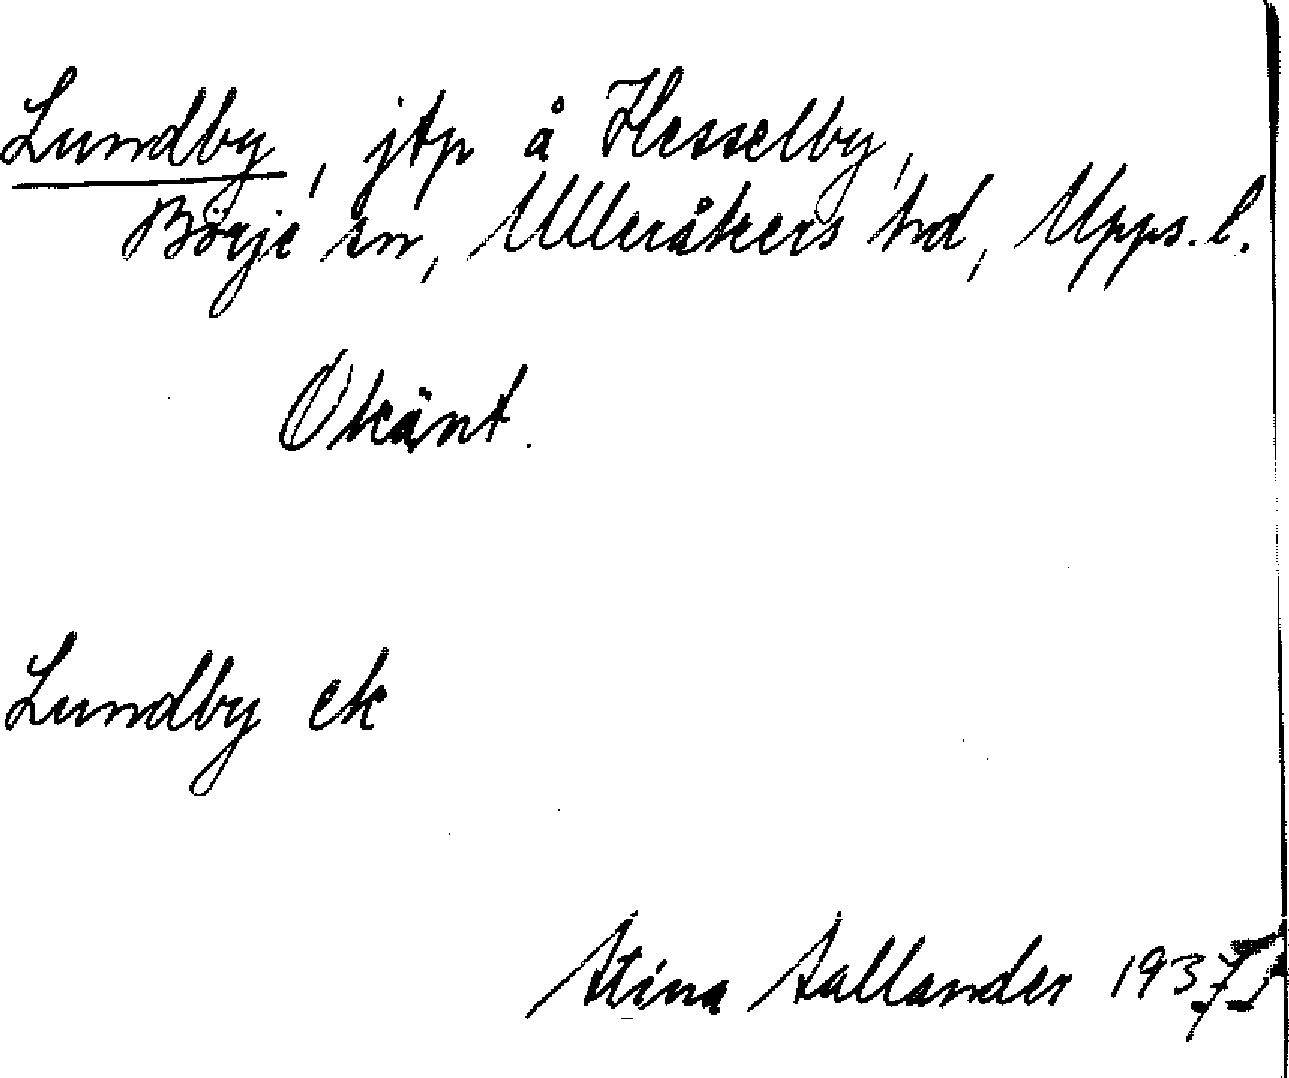 Lundby, jtp å Hesselby,
Börje sn, Ulleråkers hd, Upps. l.
Okänt.
Lundby ek
Stina Sallander 1937